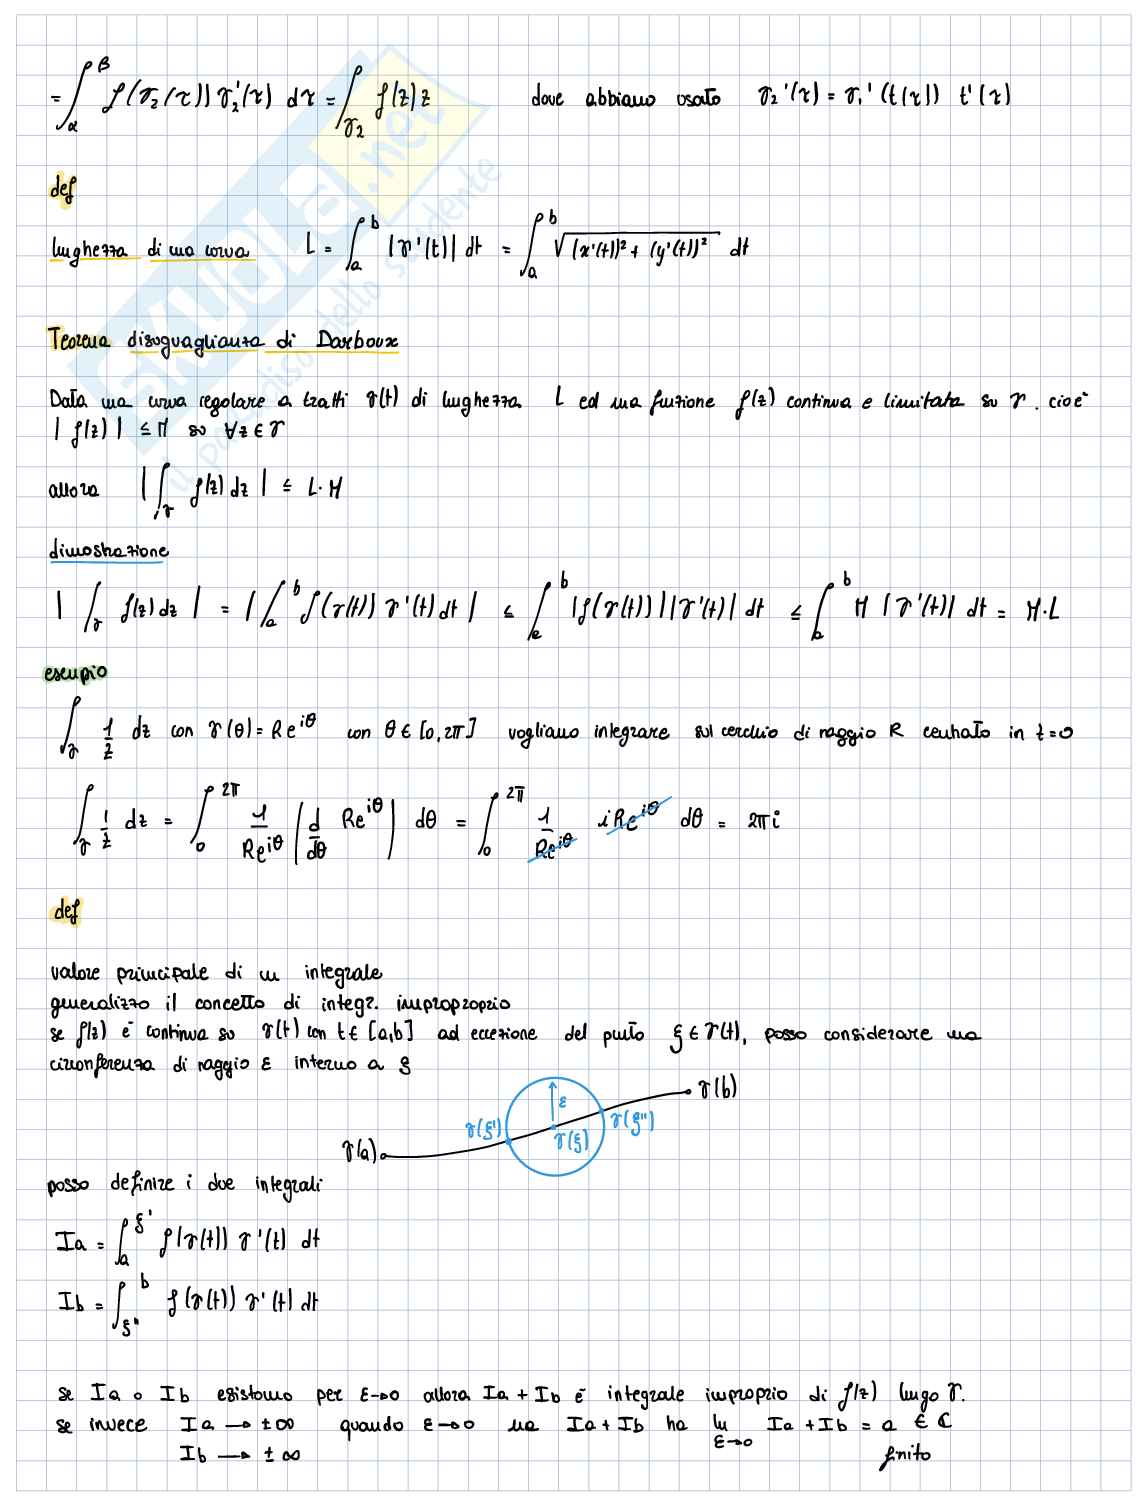 = ∫_α^β f(γ₂(τ)) γ₂'(τ) dτ = ∫_γ₂ f(z) z dove abbiamo usato γ₂'(τ) = γ₁'(t(τ)) t'(τ)
def
lunghezza di una curva L = ∫_a^b |γ'(t)| dt = ∫_a^b √((x'(t))² + (y'(t))²) dt
Teorema disuguaglianza di Darboux
Data una curva regolare a tratti γ(t) di lunghezza L ed una funzione f(z) continua e limitata su γ. cioè
|f(z)| ≤ M su ∀z ∈ γ
allora |∫_γ f(z) dz| ≤ L·M
dimostrazione
|∫_γ f(z) dz| = |∫_a^b f(γ(t)) γ'(t) dt| ≤ ∫_a^b |f(γ(t))||γ'(t)| dt ≤ ∫_a^b M |γ'(t)| dt = M·L
esempio
∫_γ 1/z dz con γ(θ) = Re^{iθ} con θ ∈ [0, 2π] vogliamo integrare sul cerchio di raggio R centrato in z=0
∫_γ 1/z dz = ∫_0^{2π} 1/Re^{iθ} (d/dθ Re^{iθ}) dθ = ∫_0^{2π} 1/Re^{iθ} iRe^{iθ} dθ = 2πi
def
valore principale di un integrale
generalizzo il concetto di integr. improproprio
se f(z) è continua su γ(t) con t ∈ [a,b] ad eccezione del punto ξ ∈ γ(t), posso considerare una
circonferenza di raggio ε interno a ξ
γ(a) γ(ξ') ε γ(ξ) γ(ξ'') γ(b)
posso definire i due integrali
Ia = ∫_a^{ξ'} f(γ(t)) γ'(t) dt
Ib = ∫_{ξ''}^b f(γ(t)) γ'(t) dt
se Ia o Ib esistono per ε→0 allora Ia + Ib è integrale improprio di f(z) lungo γ.
se invece Ia → ±∞ quando ε→0 ma Ia + Ib ha lim_{ε→0} Ia + Ib = a ∈ ℂ
Ib → ±∞ finito
SKUOLA.net
il paradiso dello studente